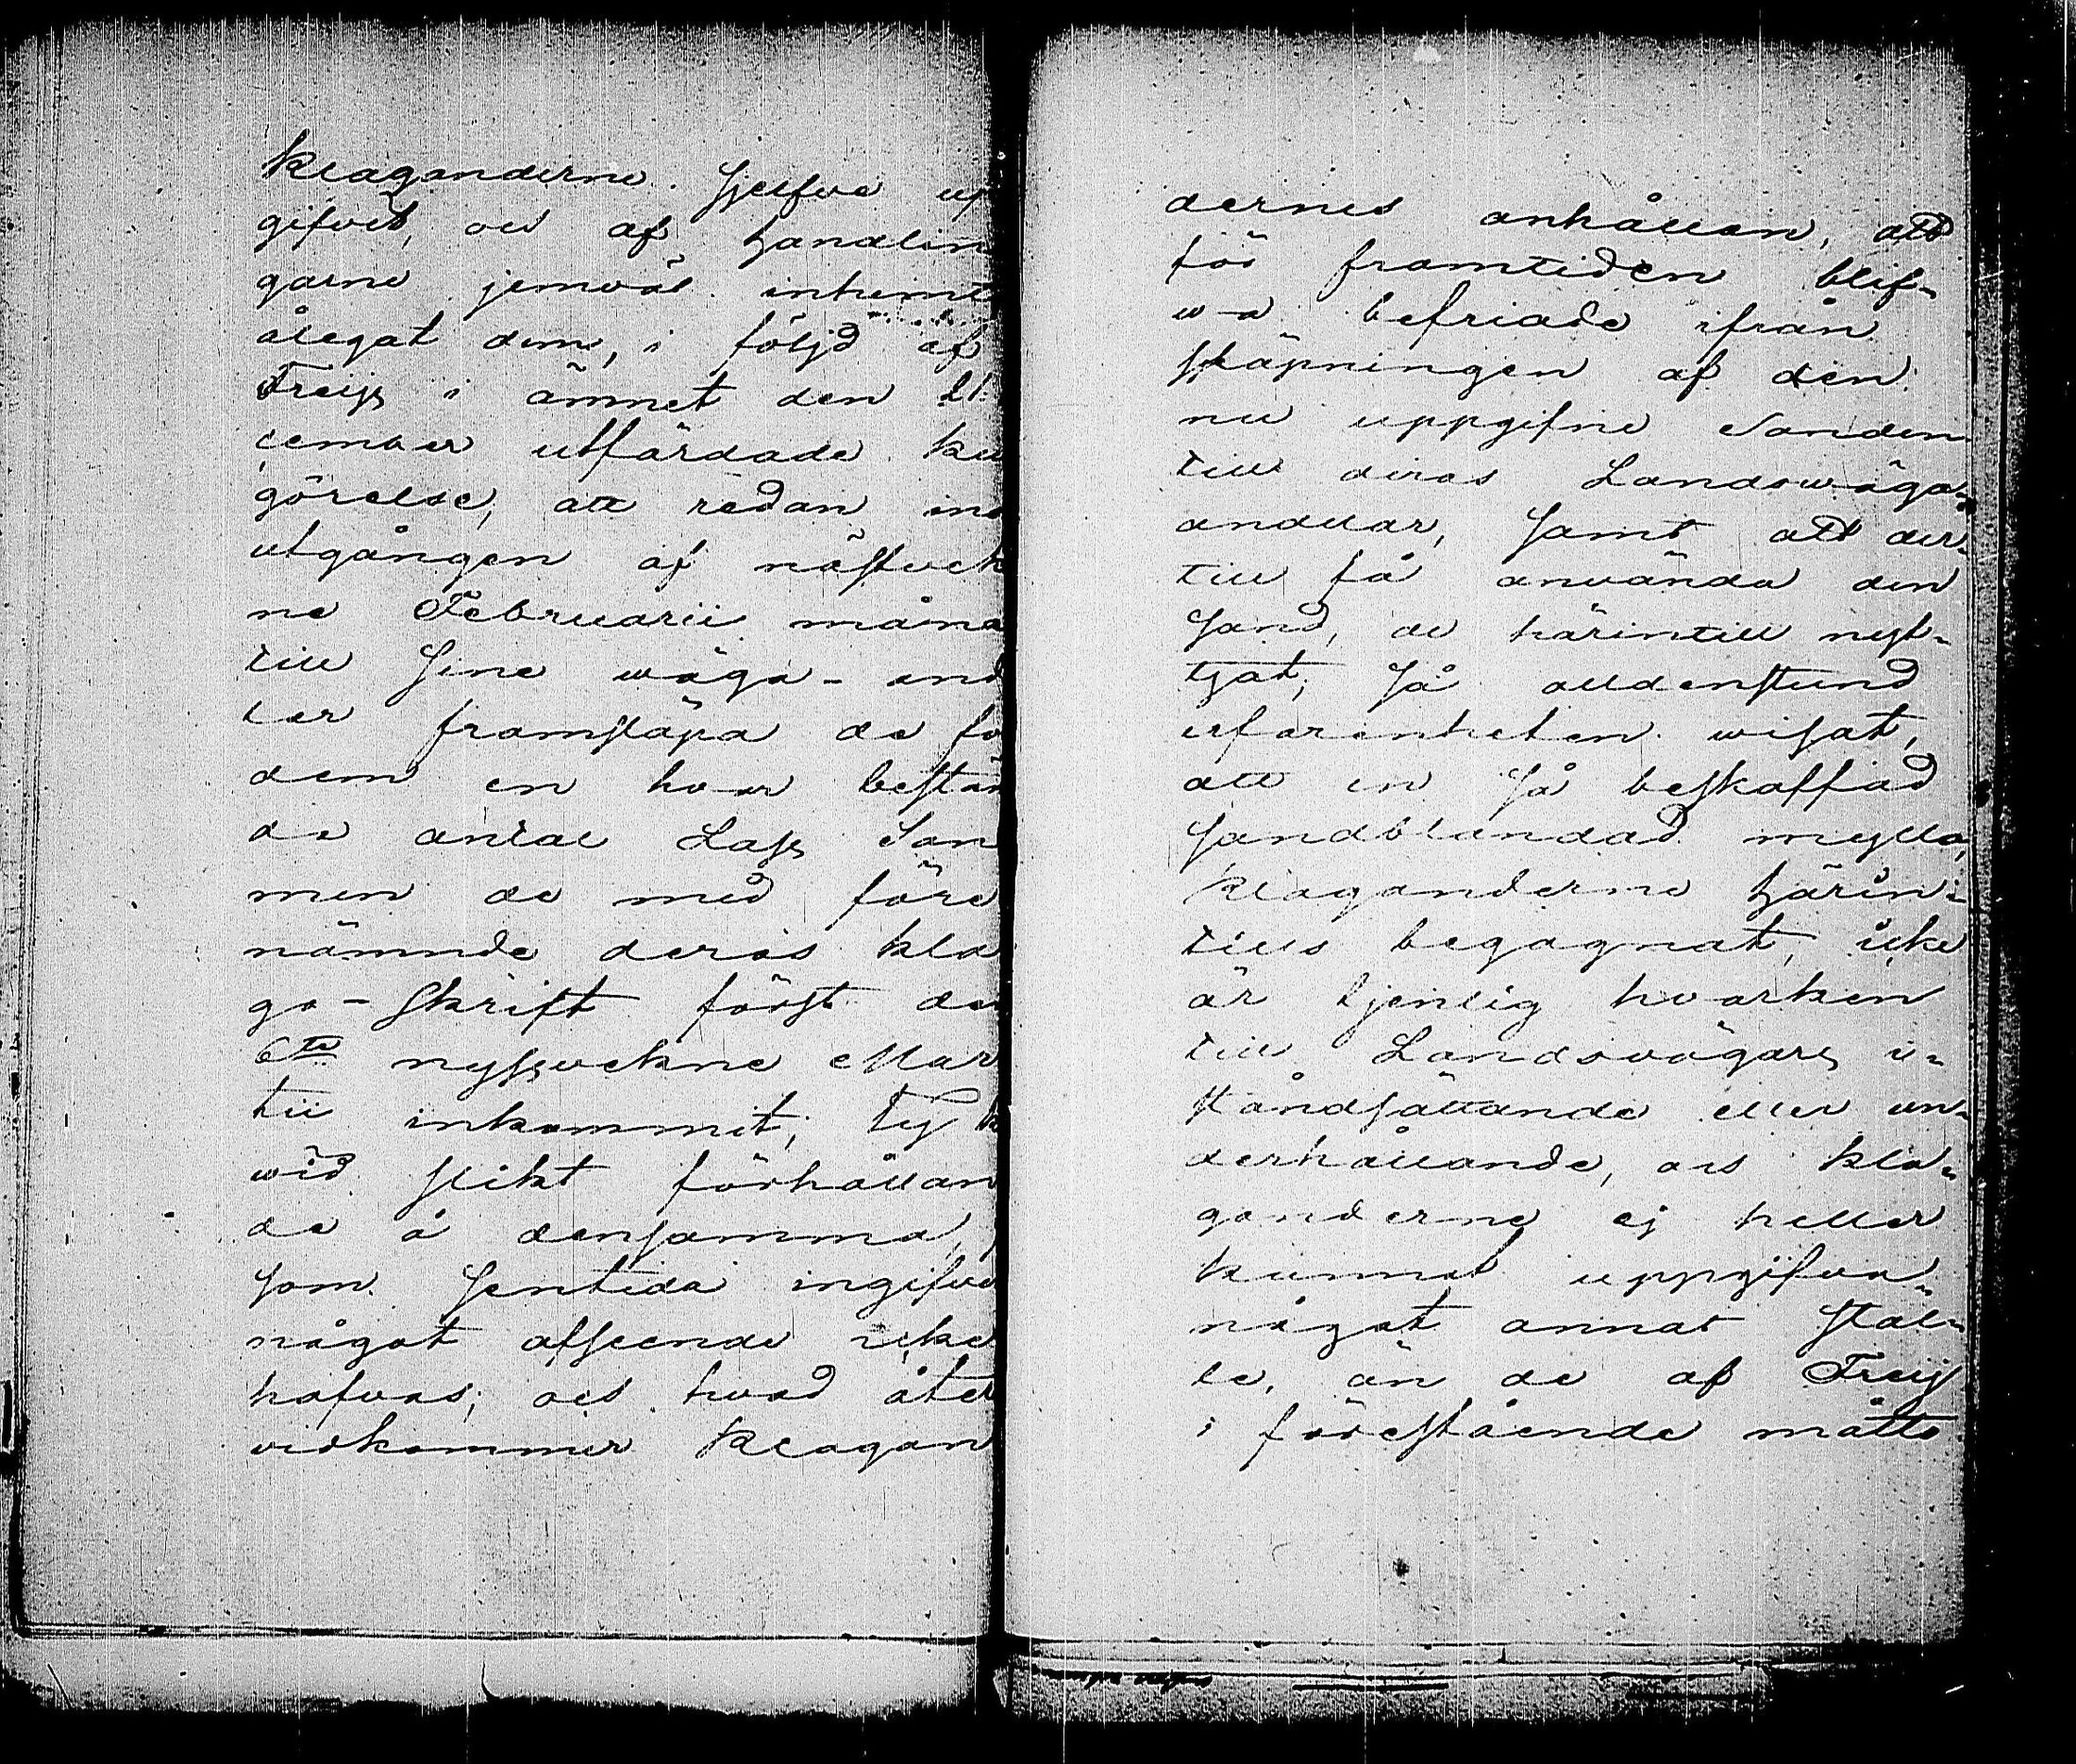 Klaganderne Sjelfwe up
gifvet, ock af Handlin
garne jemväl inhemt
ålegat dem, i följd af
Freijs i ämnet den 21
cember utfärdade ku
görelse, att redan in
utgången af nästvek
ne Februarii måna
till Sine wäga-and
lar framsläpa de fö
dem en hvar bestäm
da antal Lass San
men de med före
nämnde deras kla
go-Skrift först den
6te nyssvekne Mar
tii inkommit; Ty k
wid slikt förhållan
de å densamma,
som Sentida ingifve
något afseende icke
hafvas; och hvad åter
vidkommer Klagan
dernes anhållan, att
för framtiden blif-
wa befriade ifrån
släpningen af den
nu uppgifne Sanden
till deras Landswäga-
andelar, Samt att der-
till få använda den
Sand, de härintill nyt-
tjat; Så alldenstund
erfarenheten wisat,
att en Så beskaffad
Sandblandad mylla,
Klaganderne härin-
tills begagnat, icke
är tjenlig hvarken
till Landsvägars i-
ståndsättande eller un-
derhållande, och kla-
ganderne ej heller
kunnat uppgifva
något annat Stäl-
le, än de af Freij
i förestående måtto